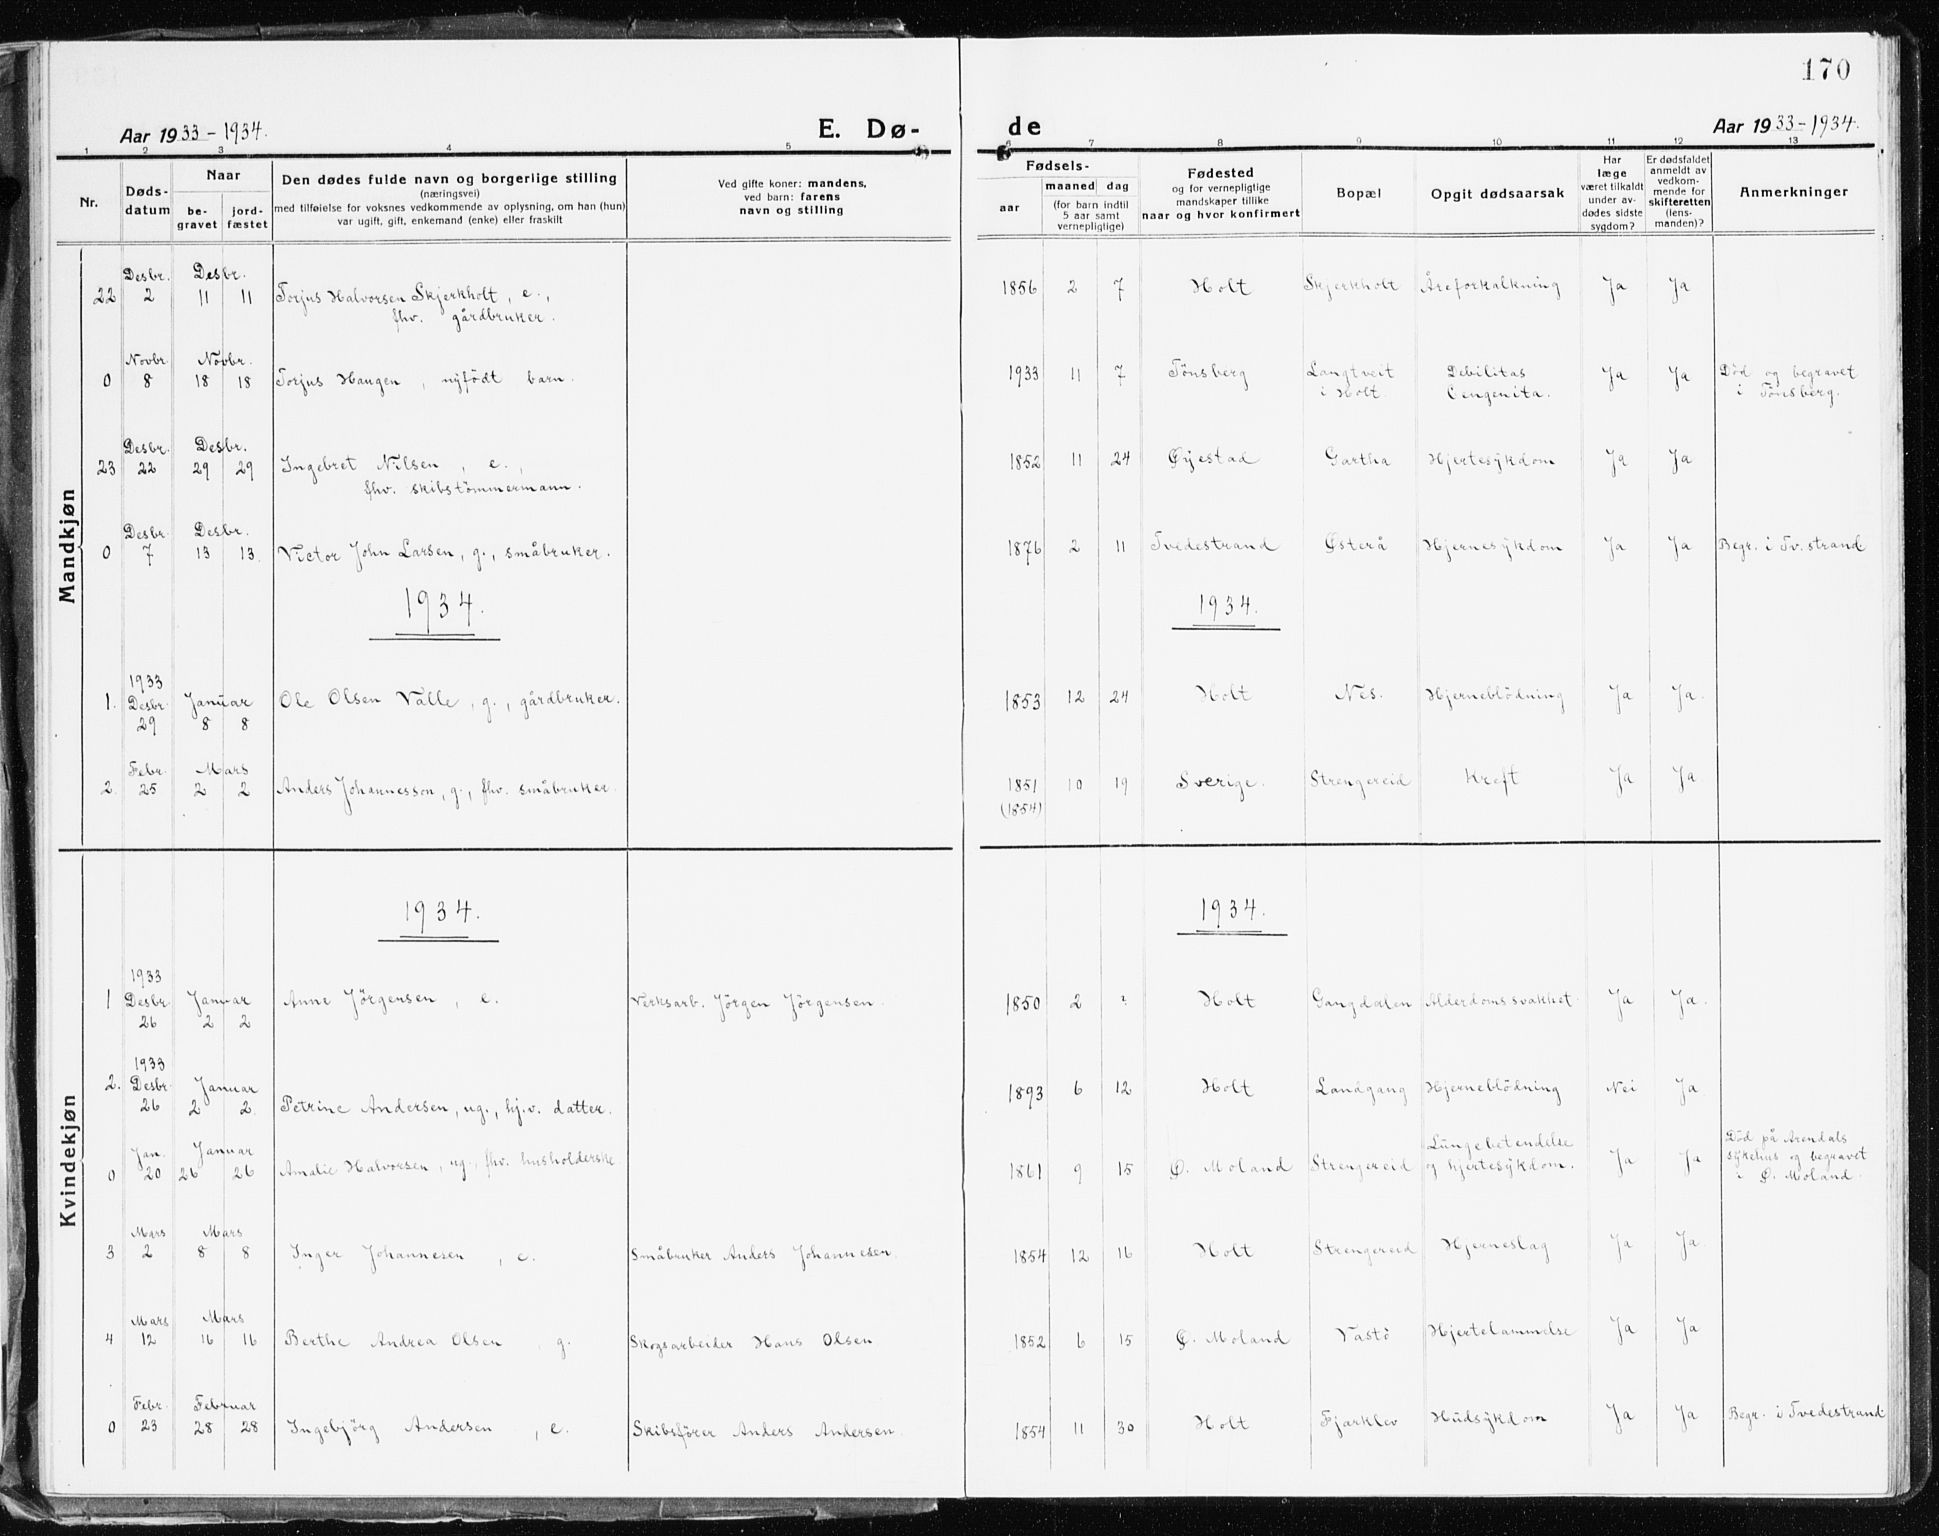 170
Aar 1933-1934. E. Dø- de Aar 1933-1934.
1 2 3 4 5 6 7 8 9 10 11 12 13
Nr.
Døds-
datum
Naar
be-
gravet
jord-
fæstet
Den dødes fulde navn og borgerlige stilling
(næringsvei)
med tilføielse for voksnes vedkommende av oplysning, om han (hun)
var ugift, gift, enkemand (enke) eller fraskilt
Ved gifte koner: mandens,
ved barn: farens
navn og stilling
Fødsels-
aar
maaned dag
(for barn indtil
5 aar samt
vernepligtige)
Fødested
og for vernepligtige
mandskaper tillike
naar og hvor konfirmert
Bopæl
Opgit dødsaarsak
Har
læge
været tilkaldt
under av-
dødes sidste
sygdom?
Er dødsfaldet
anmeldt av
vedkom-
mende for
skifteretten
(lens-
manden)?
Anmerkninger
Mandkjøn
Desbr. Desbr.
22 2 11 11 Torjus Halvorsen Skjerkholt, e.,
fhv. gårdbruker.
1856 2 7 Holt Skjerkholt Åreforkalkning Ja Ja
Novbr. Novbr.
0 8 18 18 Torjus Haugen, nyfödt barn.
1933 11 7 Tönsberg Langtveit Debilitas Ja Ja Död og begravet
i Holt. Congenita. i Tönsberg.
Desbr. Desbr.
23 22 29 29 Ingebret Nilsen, e.,
fhv. skibstömmermann.
1852 11 24 Øyestad Gartha Hjertesykdom Ja Ja
Desbr. Desbr.
0 7 13 13. Victor John Larsen, g., småbruker.
1876 2 11 Tvedestrand Østerå Hjernesykdom Ja Ja Begr. i Tv.strand
1934. 1934.
1933
1. Desbr. Januar Ole Olsen Valle, g., gårdbruker.
29 8 8
1853 12 24 Holt Nes. Hjerneblödning Ja Ja.
Febr. Mars
2. 25 2 2 Anders Johannesson, g., fhv. småbruker.
1851 10 19 Sverige. Strengereid Kreft Ja Ja
(1854)
Kvindekjøn
1934. 1934.
1933
1 Desbr. Januar Anne Jörgensen, e. Verksarb. Jörgen Jörgensen.
26 2 2
1850 2 ? Holt Gangdalen Alderdomssvakhet. Ja Ja.
1933
2. Desbr. Januar
26 2 2. Petrine Andersen, ug., hj.v. datter.
1893 6 12 Holt Landgang Hjerneblödning Nei Ja
Jan. Januar
0 20 26 26 Amalie Halvorsen, ug., fhv. husholderske
1861 9 15 Ø. Moland Strengereid Lungebetendelse
og hjertesykdom. Ja Ja Död på Arendals
sykehus og begravet
i Ø. Moland.
Mars Mars
3 2 8 8 Inger Johannesen, e. Småbruker Anders Johannesen.
1854 12 16 Holt Strengereid Hjerneslag Ja Ja.
Mars Mars
4 12 16 16 Berthe Andrea Olsen, g. Skogsarbeider Hans Olsen
1852 6 15 Ø. Moland Vastö Hjertelammelse Ja Ja
Febr. Februar
0 23 28 28 Ingebjörg Andersen, e. Skibsförer Anders Andersen.
1854 11 30 Holt Fjarklev Hudsykdom Ja Ja Begr. i Tvedestrand